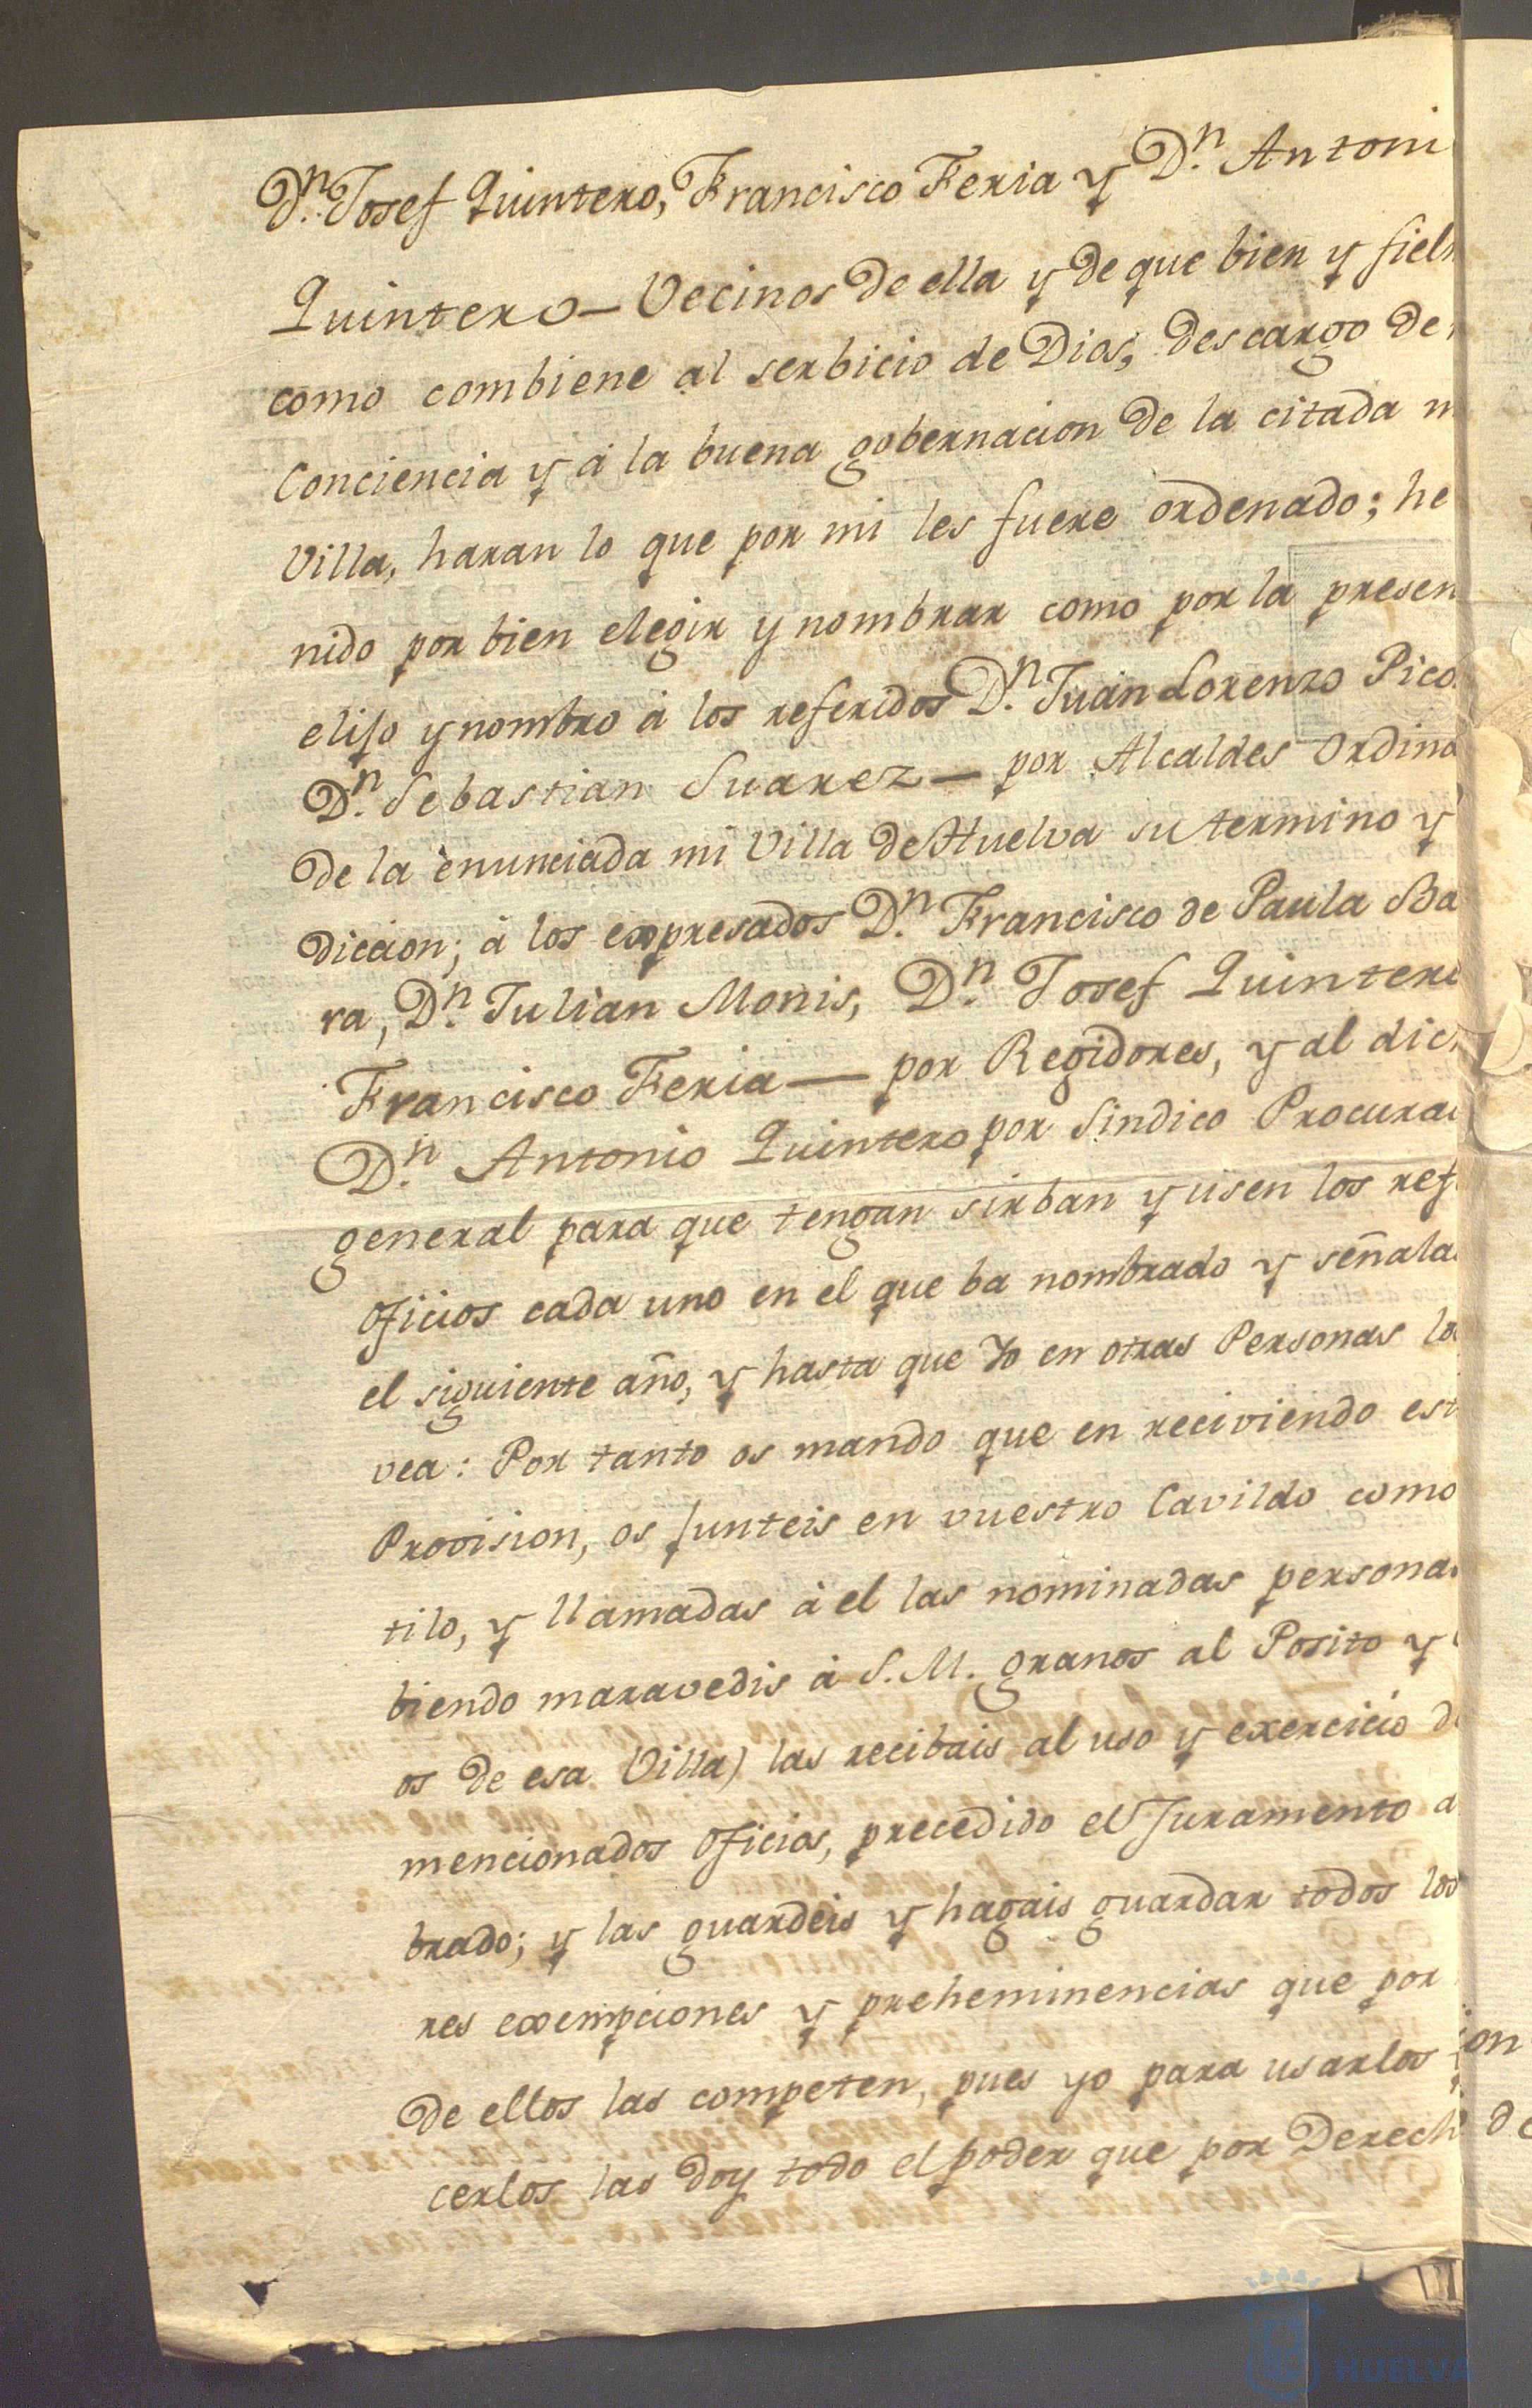 Dn. Josef Quintero, Francisco Feria y Dn. Antoni
Quintero — Vecinos de ella y de que bien y fielm
como combiene al serbicio de Dios, descargo de
Conciencia y á la buena gobernacion de la citada m
Villa, haran lo que por mi les fuere ordenado; he
nido por bien elegir y nombrar como por la presen
elijo y nombro á los referidos Dn. Juan Lorenzo Pico
Dn. Sebastian Suarez — por Alcaldes Ordina
de la enunciada mi Villa de Huelva su termino y
diccion; á los expresados Dn. Francisco de Paula Ba
ra, Dn. Julian Monis, Dn. Josef Quintero
Francisco Feria — por Regidores, y al dic
Dn. Antonio Quintero por Sindico Procura
general para que tengan sirban y usen los ref
oficios cada uno en el que ba nombrado y señala
el siguiente año, y hasta que Yo en otras Personas lo
vea: Por tanto os mando que en reciviendo est
Provision, os junteis en vuestro Cavildo como
tilo, y llamadas á el las nominadas persona
biendo maravedis á S. M. granos al Posito y
os de esa Villa) las recibais al uso y exercicio d
mencionados oficios, precedido el Juramento a
brado; y las guardeis y hagais guardar todos los
res exempciones y preheminencias que por
de ellos las competen, pues yo para usarlos
cerlos las doy todo el poder que por Derech
ion
de
HUELVA